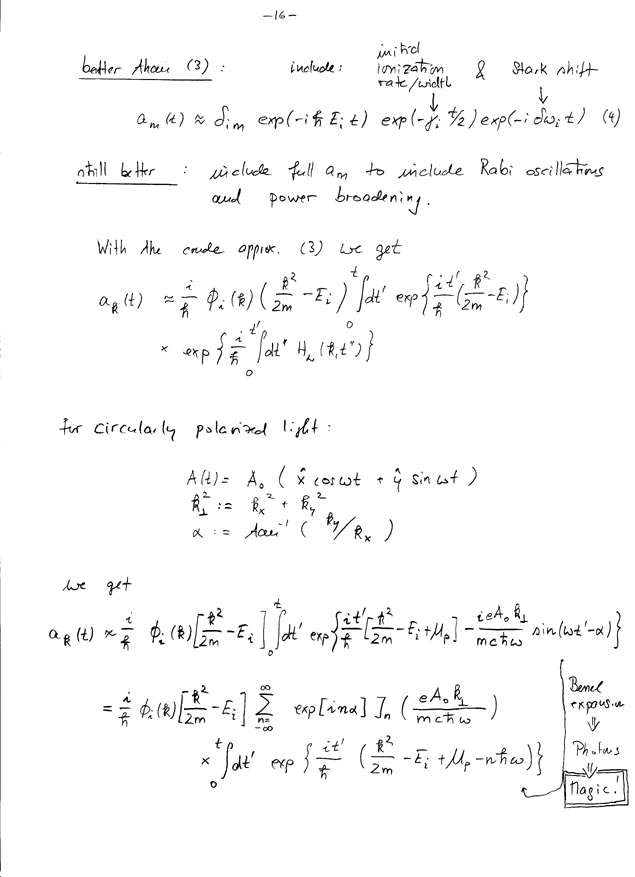 -16-
initial
better than (3) : include: ionization & Stark shift
rate/width
a_m(t) ≈ δ_im exp(-iħ E_i t) exp(-γ_i t/2) exp(-i δω_i t) (4)
still better : include full a_m to include Rabi oscillations
and power broadening.
With the crude approx. (3) we get
a_k(t) ≈ i/ħ ϕ_i(k) (k²/2m - E_i) ∫_0^t dt' exp{it'/ħ (k²/2m - E_i)}
× exp{i/ħ ∫_0^t' dt" H_L(k,t")}
for circularly polarized light :
A(t) = A_0 ( x̂ cos ωt + ŷ sin ωt )
k_⊥² := k_x² + k_y²
α := tan⁻¹ ( k_y/k_x )
we get
a_k(t) ≈ i/ħ ϕ_i(k) [k²/2m - E_i] ∫_0^t dt' exp{it'/ħ [k²/2m - E_i + U_p] - ieA_0k_⊥/mcħω sin(ωt'-α)}
= i/ħ ϕ_i(k) [k²/2m - E_i] ∑_{n=-∞}^∞ exp[inα] J_n (eA_0k_⊥/mcħω)
× ∫_0^t dt' exp {it'/ħ (k²/2m - E_i + U_p - nħω)}
Bessel
expansion
⇓
Photons
⇓
Magic!